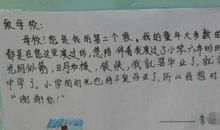 致母校：
母校！您是我的第二个家。我的童年大多数
都是在您这里度过的，您陪伴着我度过了小学六年的时
光阴似箭，日月如梭，很快，我就要毕业了，就
中学了。小学的时光也将不复存在了，所以我想对
"谢谢你！"
李